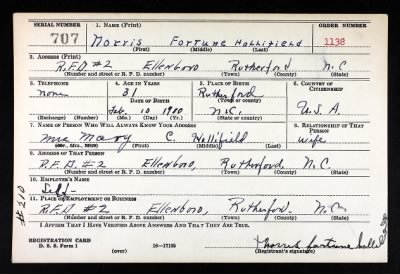 SERIAL NUMBER 1. NAME (Print) ORDER NUMBER
707 Morris Fortune Hollifield 1138
(First) (Middle) (Last)
2. ADDRESS (Print)
R.F.D #2 Ellenboro Rutherford N.C
(Number and street or R. F. D. number) (Town) (County) (State)
3. TELEPHONE 4. AGE IN YEARS 5. PLACE OF BIRTH 6. COUNTRY OF CITIZENSHIP
None 31 Rutherford
DATE OF BIRTH (Town or county)
Feb. 10 1910 N.C. U.S.A.
(Exchange) (Number) (Mo.) (Day) (Yr.) (State or country)
7. NAME OF PERSON WHO WILL ALWAYS KNOW YOUR ADDRESS 8. RELATIONSHIP OF THAT PERSON
Mrs Mary C. Hollifield wife
(Mr., Mrs., Miss) (First) (Middle) (Last)
9. ADDRESS OF THAT PERSON
R.F.D. #2 Ellenboro, Rutherford, N.C.
(Number and street or R. F. D. number) (Town) (County) (State)
10. EMPLOYER'S NAME
Self-
11. PLACE OF EMPLOYMENT OR BUSINESS
R.F.D #2 Ellenboro, Rutherford. N.C
(Number and street or R. F. D. number) (Town) (County) (State)
I AFFIRM THAT I HAVE VERIFIED ABOVE ANSWERS AND THAT THEY ARE TRUE.
REGISTRATION CARD
D. S. S. Form 1 16—17105
(over) (Registrant's signature)
Morris fortune
#210